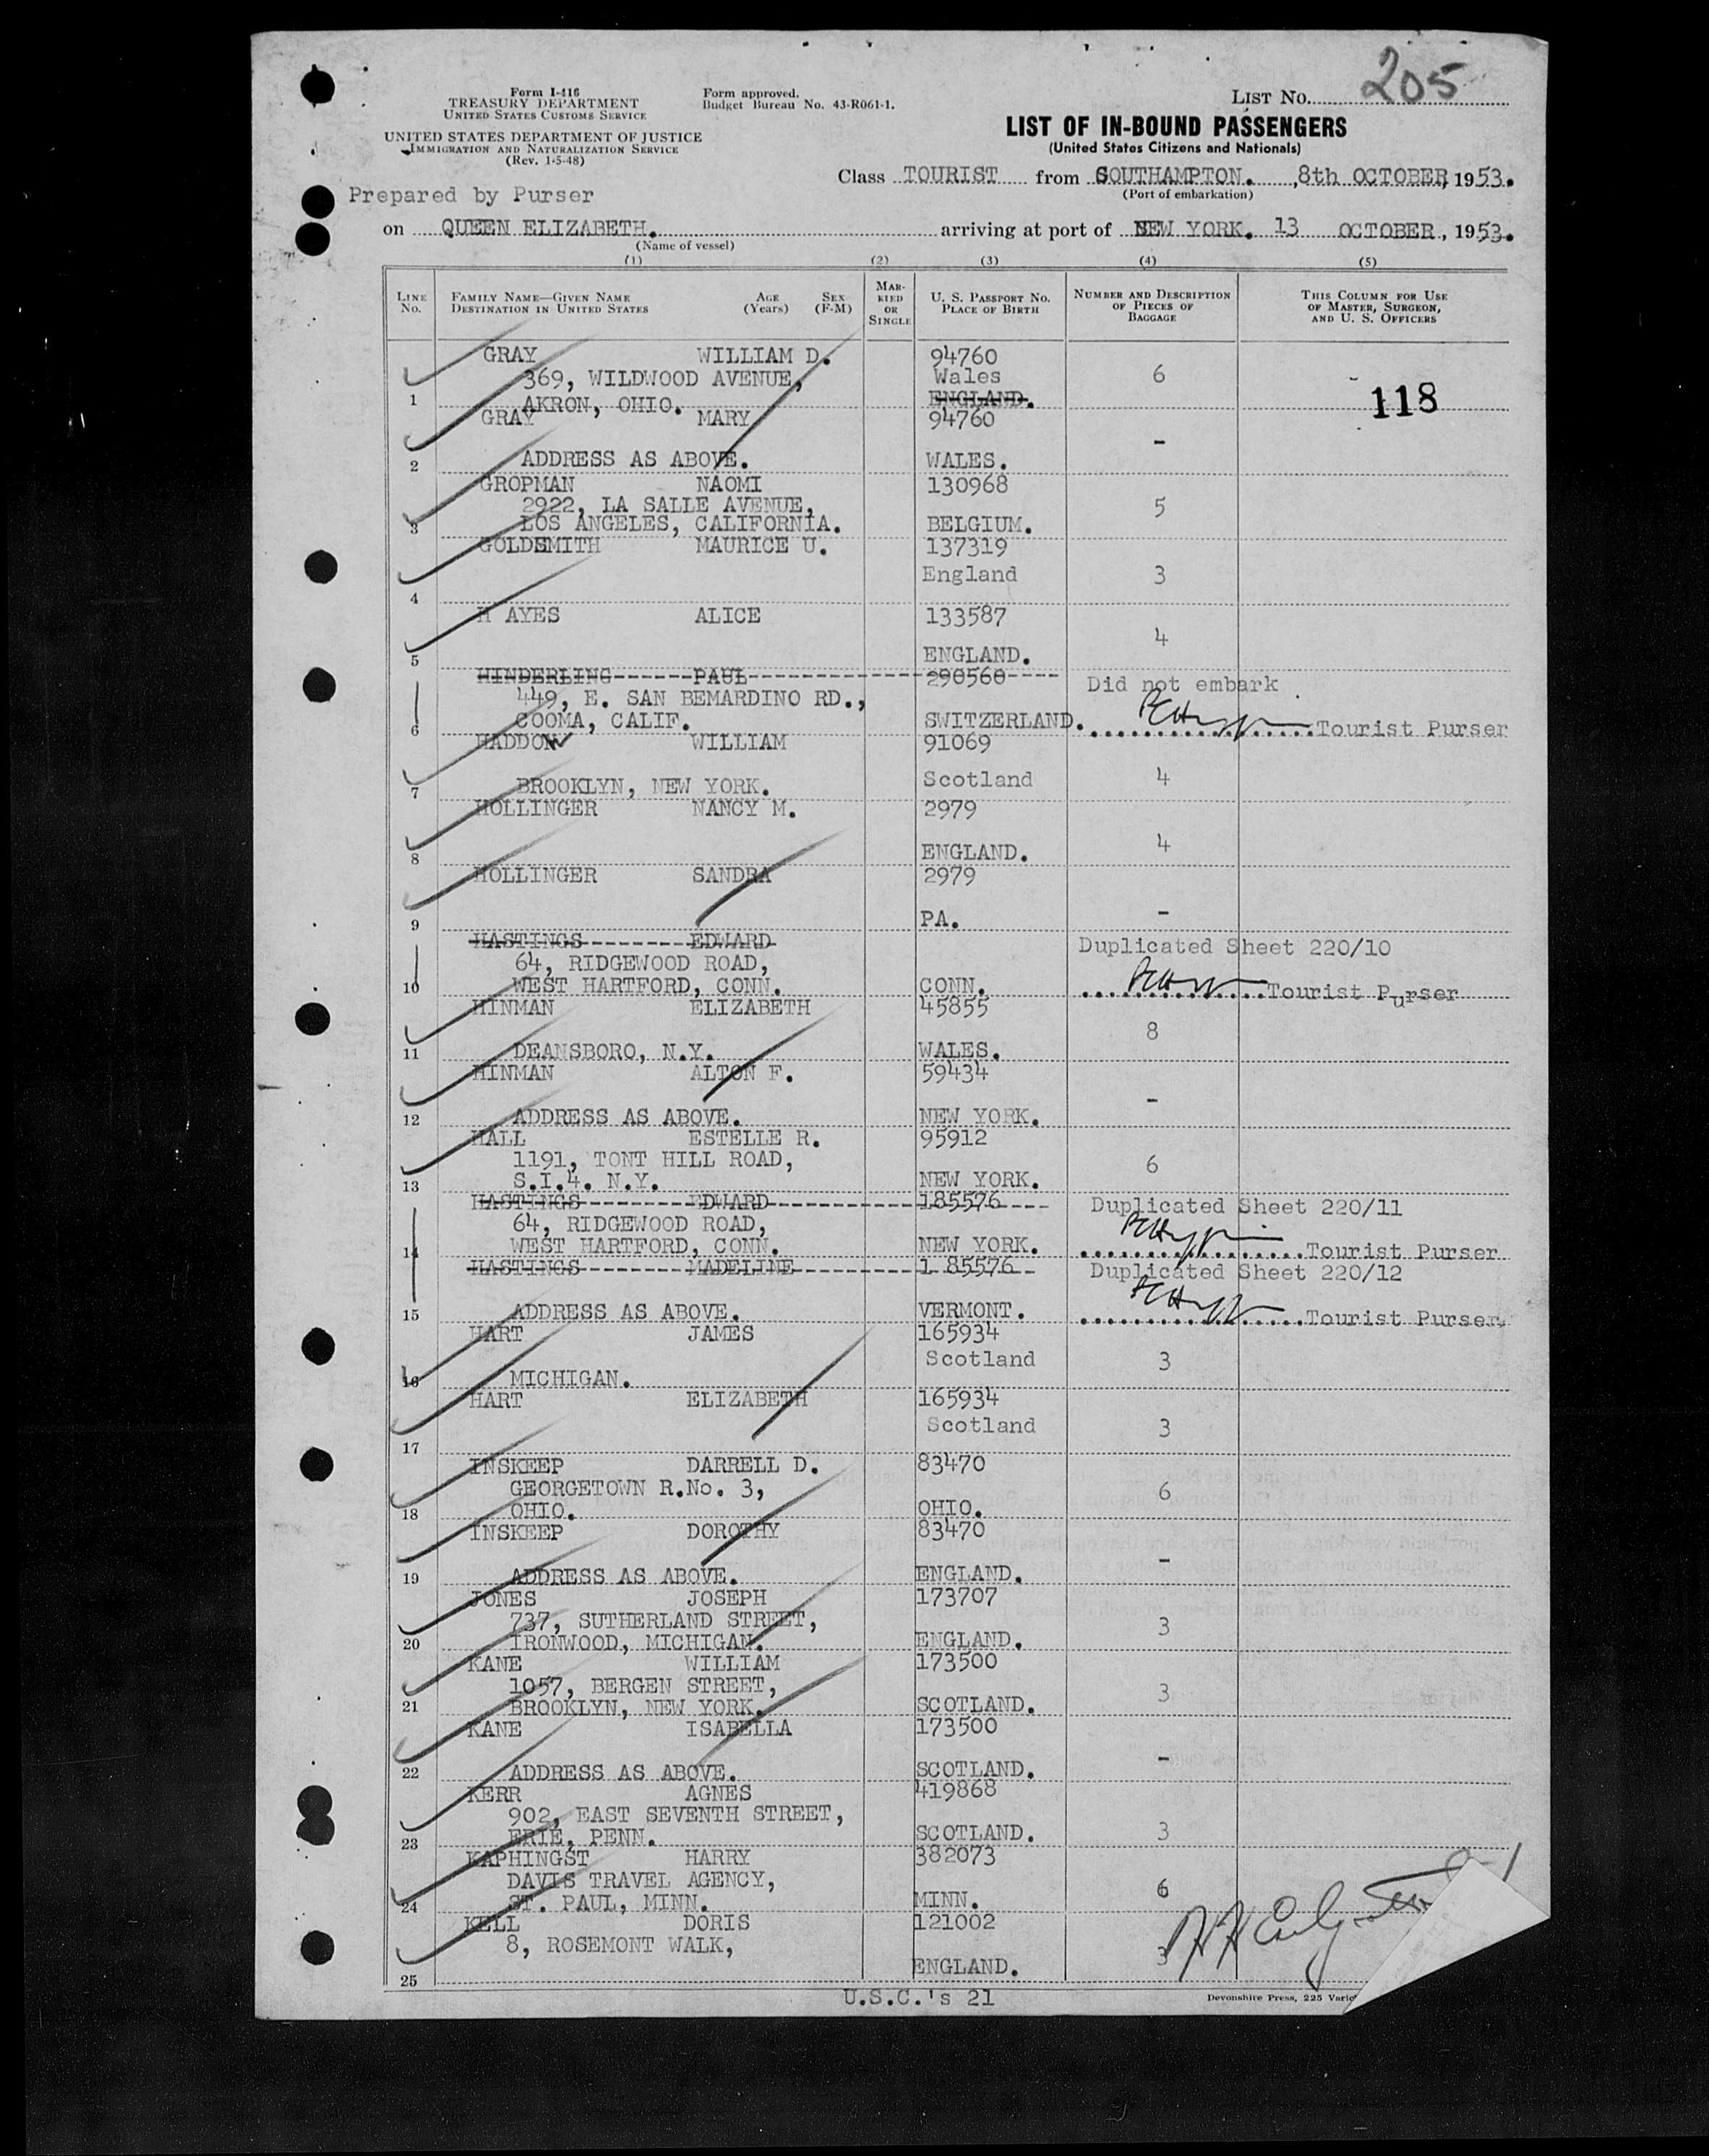 Form I-416
TREASURY DEPARTMENT
UNITED STATES CUSTOMS SERVICE
UNITED STATES DEPARTMENT OF JUSTICE
IMMIGRATION AND NATURALIZATION SERVICE
(Rev. 1-5-48)
Form approved.
Budget Bureau No. 43-R061-1.
LIST No. 205
LIST OF IN-BOUND PASSENGERS
(United States Citizens and Nationals)
Class TOURIST from SOUTHAMPTON. , 8th OCTOBER, 1953.
(Port of embarkation)
Prepared by Purser
on QUEEN ELIZABETH. arriving at port of NEW YORK. 13 OCTOBER, 1953.
(Name of vessel)
(1) (2) (3) (4) (5)
LINE No. FAMILY NAME—GIVEN NAME DESTINATION IN UNITED STATES AGE (Years) SEX (F-M) MARRIED OR SINGLE U. S. PASSPORT No. PLACE OF BIRTH NUMBER AND DESCRIPTION OF PIECES OF BAGGAGE THIS COLUMN FOR USE OF MASTER, SURGEON, AND U. S. OFFICERS
GRAY WILLIAM D. 94760
369, WILDWOOD AVENUE, Wales 6
1 AKRON, OHIO. ENGLAND. 118
GRAY MARY 94760
-
2 ADDRESS AS ABOVE. WALES.
GROPMAN NAOMI 130968
2922, LA SALLE AVENUE, 5
3 LOS ANGELES, CALIFORNIA. BELGIUM.
GOLDSMITH MAURICE U. 137319
England 3
4
H AYES ALICE 133587
4
5 ENGLAND.
HINDERLING PAUL 290560 Did not embark
449, E. SAN BEMARDINO RD.,
6 COOMA, CALIF. SWITZERLAND. Tourist Purser
HADDOW WILLIAM 91069
Scotland 4
7 BROOKLYN, NEW YORK.
HOLLINGER NANCY M. 2979
4
8 ENGLAND.
HOLLINGER SANDRA 2979
-
9 PA.
HASTINGS EDWARD Duplicated Sheet 220/10
64, RIDGEWOOD ROAD,
10 WEST HARTFORD, CONN. CONN. Tourist Purser
HINMAN ELIZABETH 45855
8
11 DEANSBORO, N.Y. WALES.
HINMAN ALTON F. 59434
-
12 ADDRESS AS ABOVE. NEW YORK.
HALL ESTELLE R. 95912
1191, TONT HILL ROAD, 6
13 S.I.4. N.Y. NEW YORK.
HASTINGS EDWARD 185576 Duplicated Sheet 220/11
64, RIDGEWOOD ROAD,
14 WEST HARTFORD, CONN. NEW YORK. Tourist Purser
HASTINGS MADELINE 1 85576 Duplicated Sheet 220/12
15 ADDRESS AS ABOVE. VERMONT. Tourist Purser.
HART JAMES 165934
Scotland 3
16 MICHIGAN.
HART ELIZABETH 165934
Scotland 3
17
INSKEEP DARRELL D. 83470
GEORGETOWN R.No. 3, 6
18 OHIO. OHIO.
INSKEEP DOROTHY 83470
-
19 ADDRESS AS ABOVE. ENGLAND.
JONES JOSEPH 173707
737, SUTHERLAND STREET, 3
20 IRONWOOD, MICHIGAN. ENGLAND.
KANE WILLIAM 173500
1057, BERGEN STREET, 3
21 BROOKLYN, NEW YORK. SCOTLAND.
KANE ISABELLA 173500
-
22 ADDRESS AS ABOVE. SCOTLAND.
KERR AGNES 419868
902, EAST SEVENTH STREET, 3
23 ERIE, PENN. SCOTLAND.
KAPHINGST HARRY 382073
DAVIS TRAVEL AGENCY, 6
24 ST. PAUL, MINN. MINN.
KELL DORIS 121002
8, ROSEMONT WALK, 3
25 ENGLAND.
U.S.C.'s 21
Devonshire Press, 225